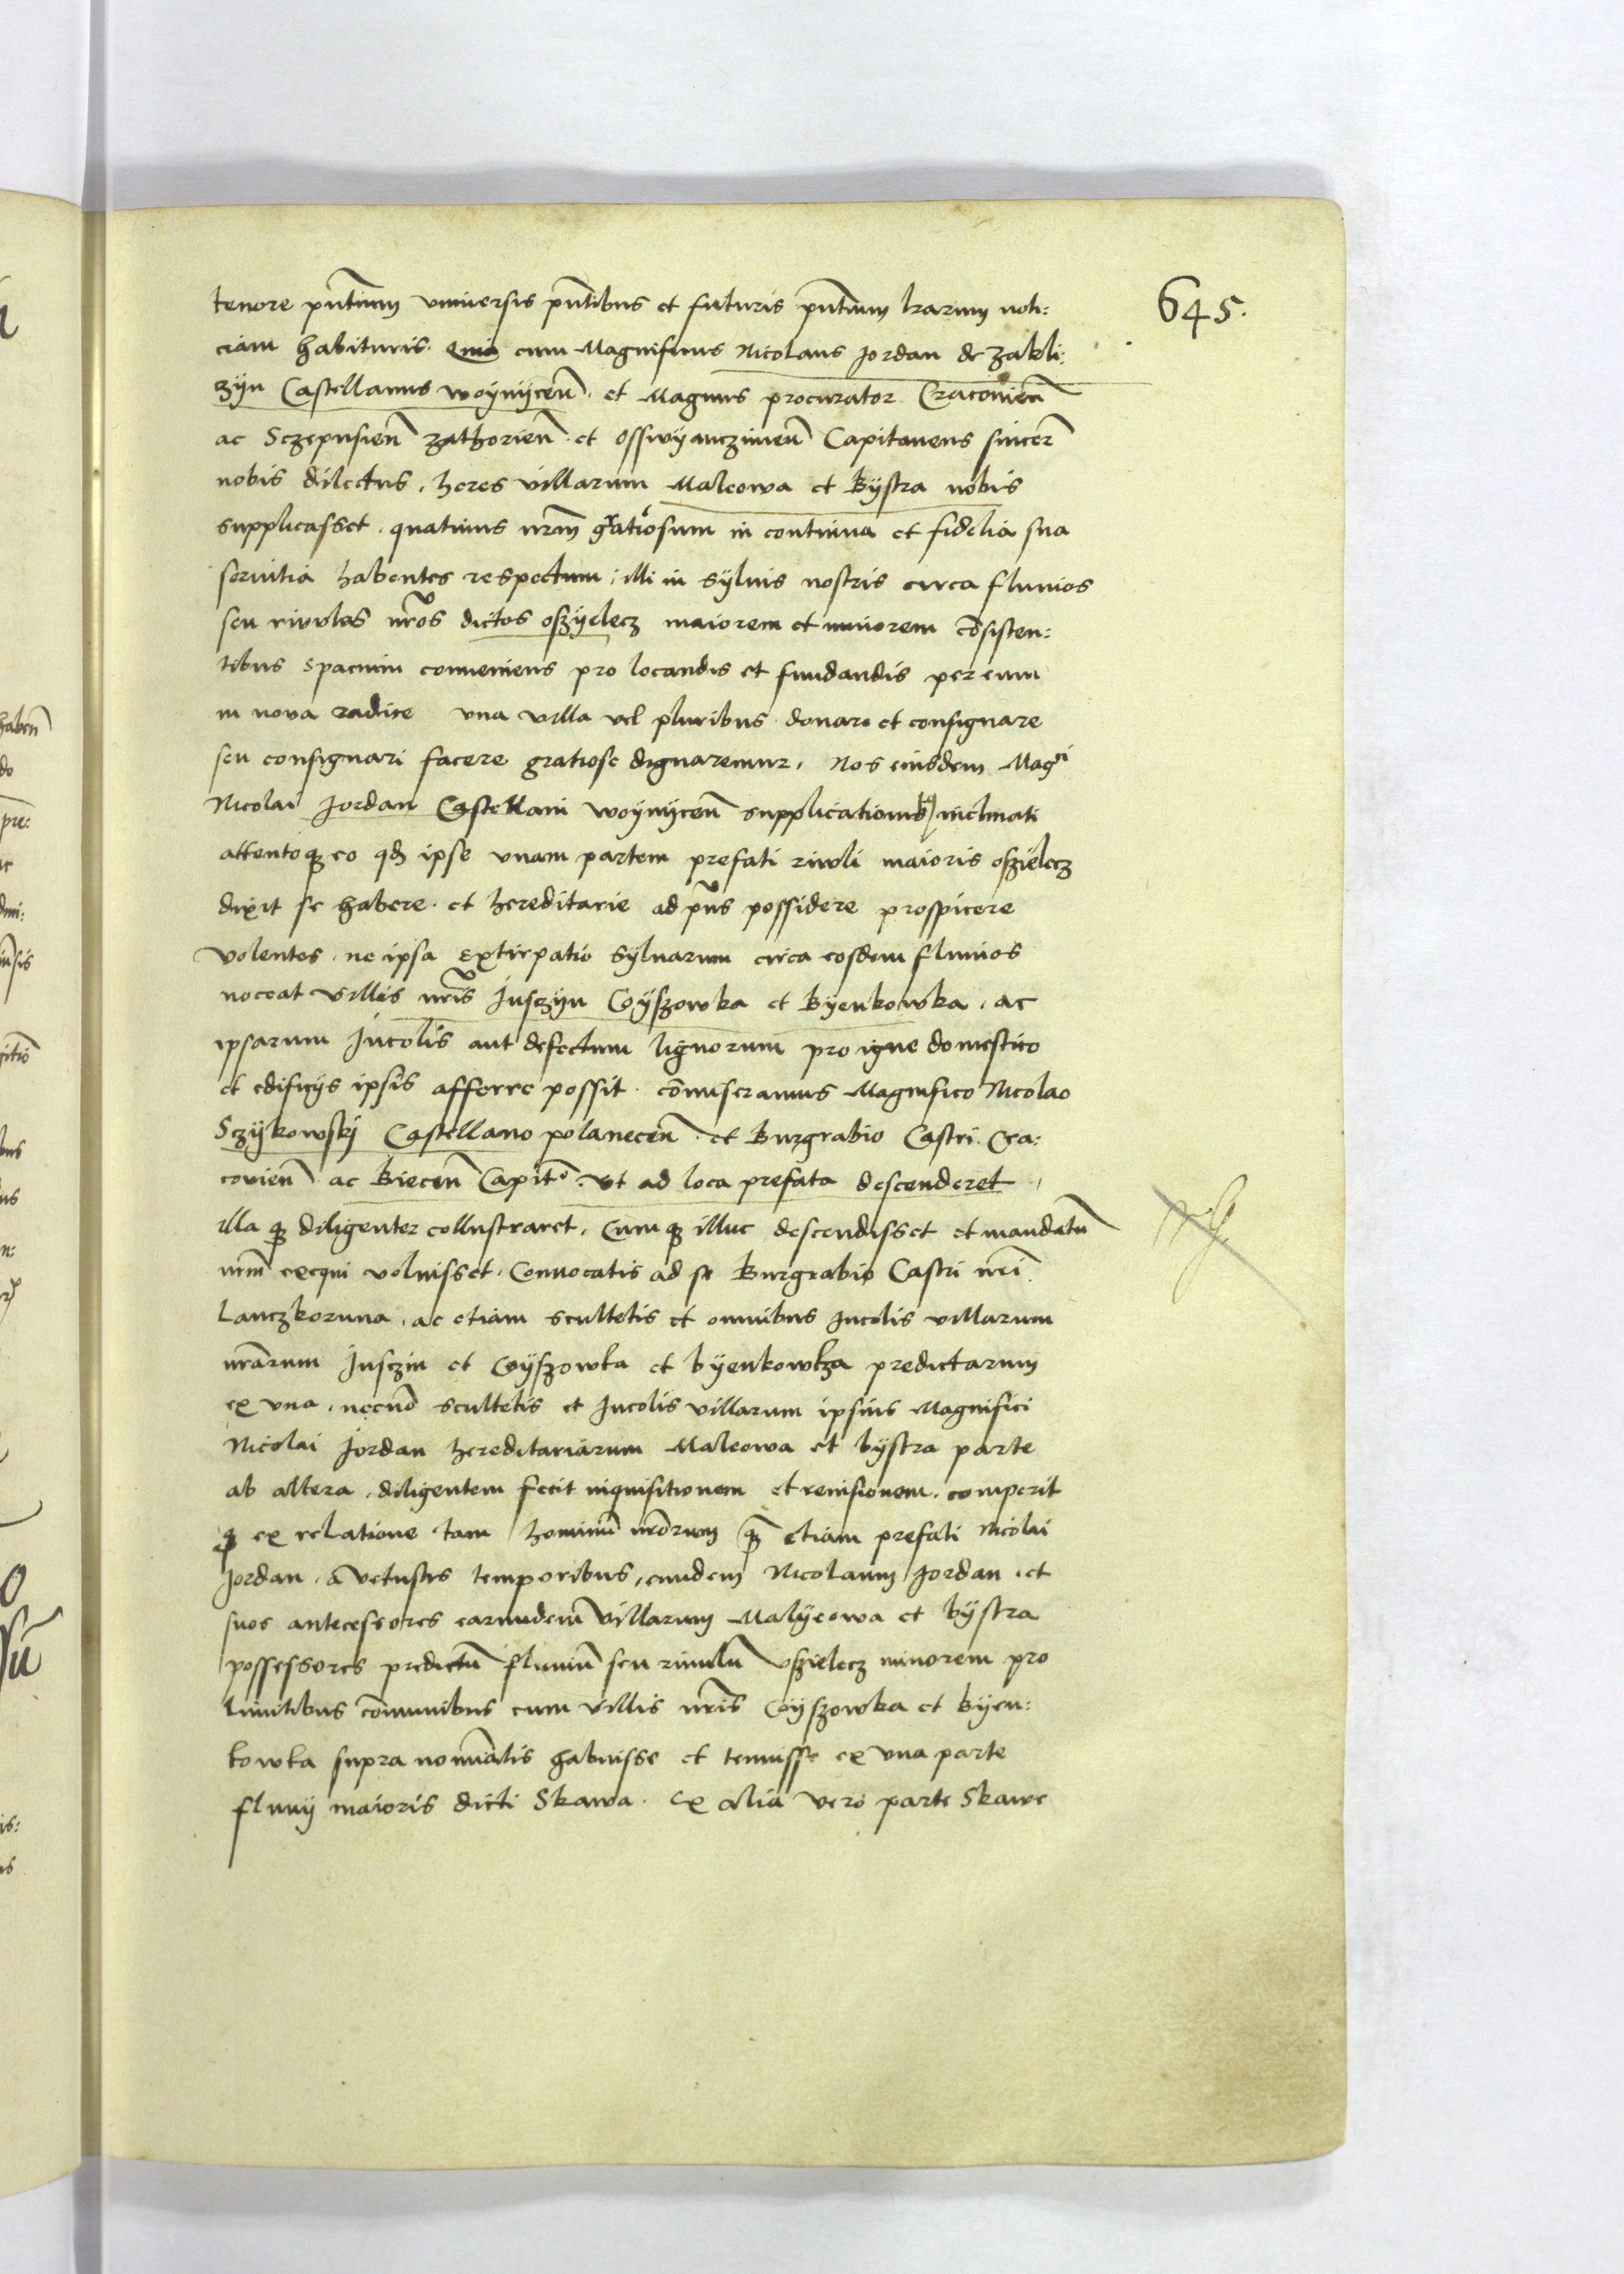 645.
tenore pñtium vniuersis pñtibus et futuris pñtium lrarum noti:
ciam habituris. Quia cum Magnificus Nicolaus Jordan de Zakli:
czÿn Castellanus woÿnÿceñ. et Magnus procurator Cracouieñ
ac Sczepusieñ Zathorieñ. et Osswÿanczimeñ Capitaneus sincere
nobis dilectus, heres villarum Maleowa et Bÿstra nobis
supplicasset. quatinus nrm̃ gratiosum in continua et fidelia sua
seruitia habentes respectum, illi in sÿluis nostris circa fluuios
seu riuulos nr̃os dictos oszÿelecz maiorem et minorem cõsisten:
tibus spacium conueniens pro locandis et fundandis per eum
in noua radice vna villa vel pluribus donare et consignare
seu consignari facere gratiose dignaremur. Nos eiusdem Magci
Nicolai Jordan Castellani woÿnÿceñ supplicationibus inclinati
attentoq3 eo qd ipse vnam partem prefati riuoli maioris oszielecz
dixit se habere. et hereditarie ad pñs possidere prospicere
volentes. ne ipsa extirpatio sÿluarum circa eosdem fluuios
noceat villis nr̃is Jusczÿn Cÿszowka et Bÿenkowka. ac
ipsarum Jncolis aut defectum lignorum pro igne domestico
et edificÿs ipsis afferre possit. cõmiseramus Magnifico Nicolao
Sczÿkowskj Castellano polaneceñ. et Burgrabio Castri Cra:
couieñ ac Bieceñ Capit°. vt ad loca prefata descenderet,
illa q3 diligenter collustraret. Cumq3 illuc descendisset et mandatũ
nrm̃ exequi voluisset. Conuocatis ad se Burgrabio Castri nr̃i
Lanczkoruna. ac etiam scultetis et omnibus Jncolis villarum
nrãrum Jusczin et Cÿszowka et bÿenkowka predictarum
ex vna. necnõ scultetis et Jncolis villarum ipsius Magnifici
Nicolai Jordan hereditariarum Maleowa et bÿstra parte
ab altera. diligentem fecit inquisitionem et reuisionem. comperit
q3 ex relatione tam hominũ nrõrum q̃3 etiam prefati Nicolai
Jordan. a vetustis temporibus, eundem Nicolaum Jordan. et
suos antecessores earundem villarum Malÿeowa et bÿstra
possessores predictũ fluuiũ seu riuulũ oszielecz minorem pro
limitibus cõmunibus cum villis nr̃is Cÿszowka et Bÿen:
kowka supra nominãtis habuisse et tenuisse ex vna parte
fluuÿ maioris dicti Skawa. Ex alia vero parte Skawe